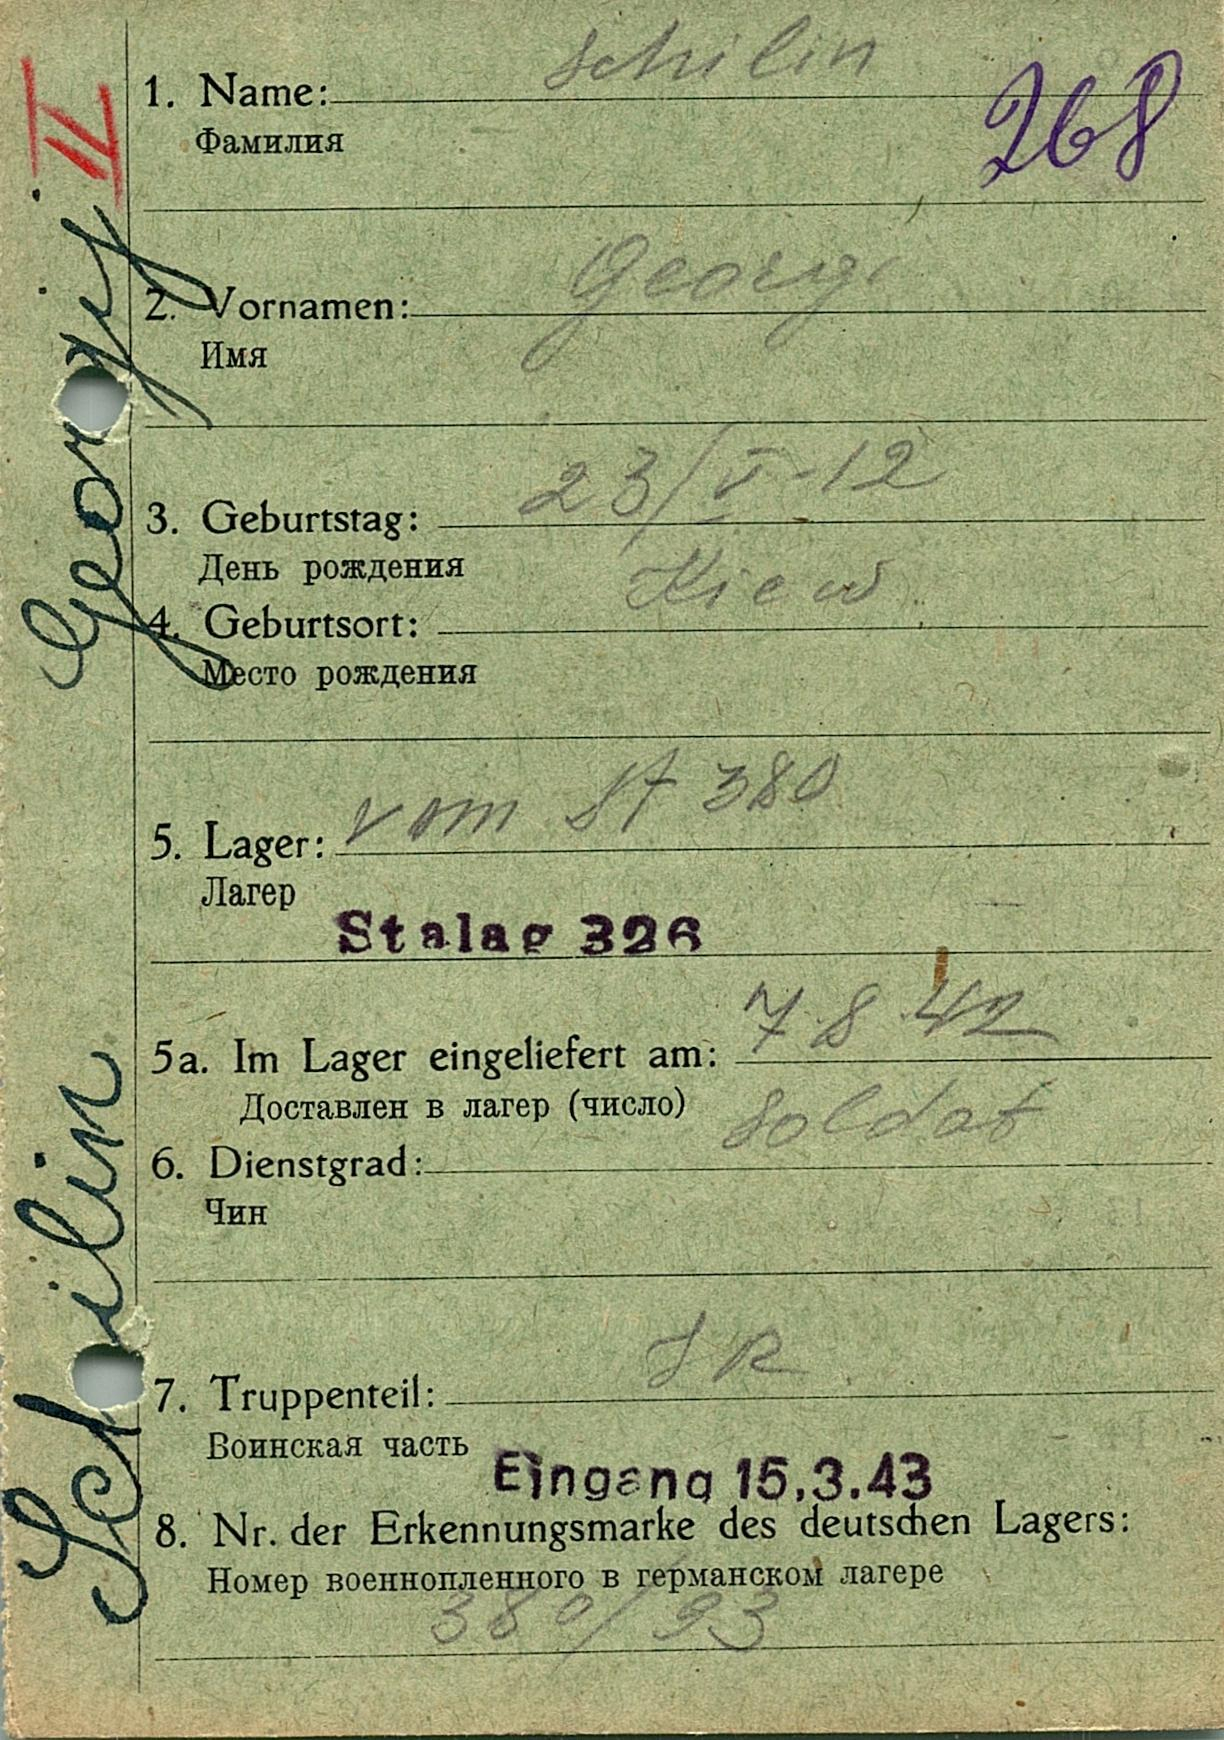 Schilin
1. Name:
Фамилия
268
II
Georgij
Georgi
2. Vornamen:
Имя
23/V-12
3. Geburtstag:
День рождения
Kiew
4. Geburtsort:
Место рождения
vom St 380
5. Lager:
Лагер
Stalag 326
7 8 42
5a. Im Lager eingeliefert am:
Доставлен в лагер (число)
Soldat
6. Dienstgrad:
Чин
Schilin
JR
7. Truppenteil:
Воинская часть
Eingang 15.3.43
8. Nr. der Erkennungsmarke des deutschen Lagers:
Номер военнопленного в германском лагере
380/93